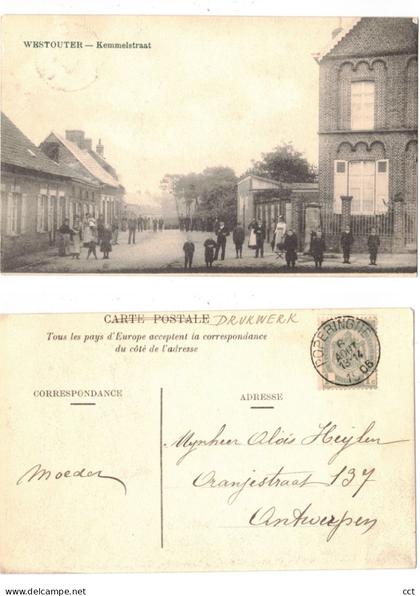 WESTOUTER — Kemmelstraat
CARTE POSTALE DRUKWERK
Tous les pays d'Europe acceptent la correspondance
du côté de l'adresse
CORRESPONDANCE
ADRESSE
POPERINGHE
6
AOUT
13-14
1906
Moeder
Mynheer Aloïs Heylen
Oranjestraat 137
Antwerpen
delcampe.net